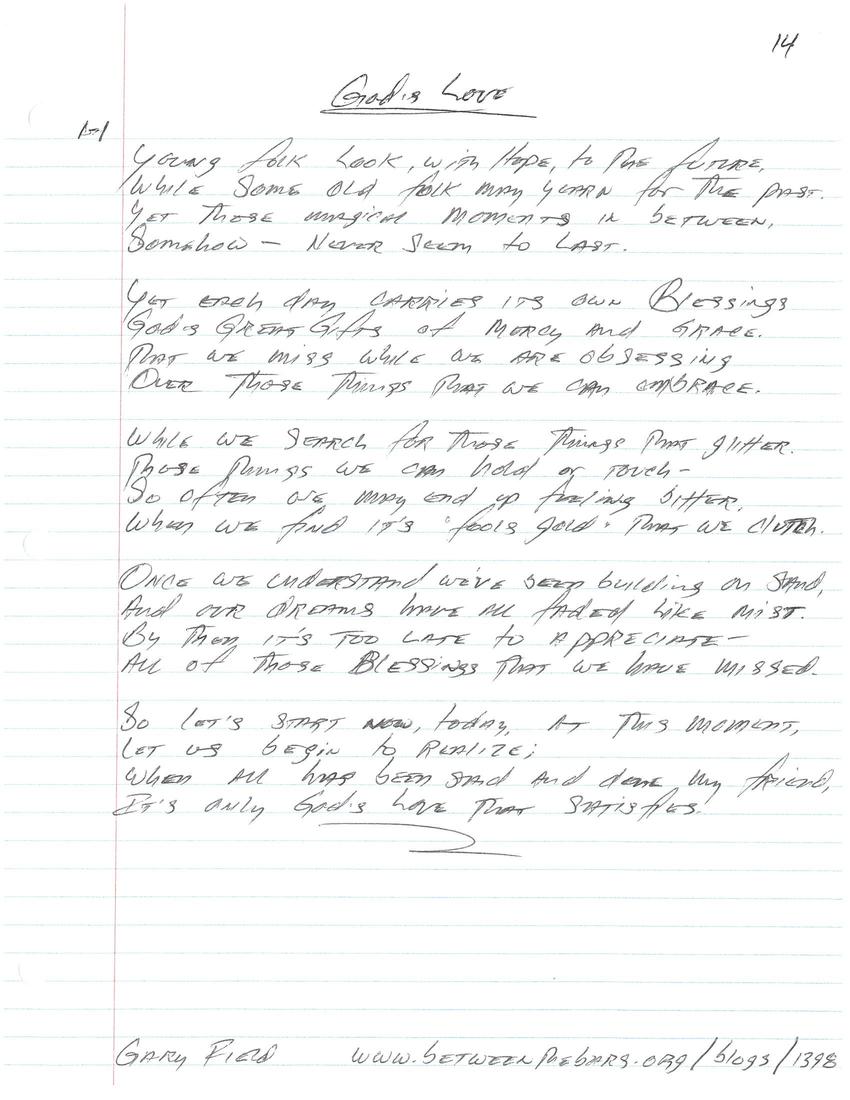 14
God's Love
Young folk look, with Hope, to the future,
While some old folk may yearn for the past.
Yet those magical moments in between,
Somehow — Never seem to last.
Yet each day carries its own Blessings
God's Great Gifts of Mercy and Grace.
That we miss while we are obsessing
Over those things that we can embrace.
While we search for those things that glitter.
Those things we can hold or touch —
So often we may end up feeling bitter,
When we find it's "fools gold" that we clutch.
Once we understand we've been building on sand,
And our dreams have all faded like mist.
By then it's too late to appreciate —
All of those Blessings that we have missed.
So let's start now, today, at this moment,
Let us begin to realize;
When all has been said and done my friend,
It's only God's Love that satisfies.
Gary Field www.betweenthebars.org/blogs/1398